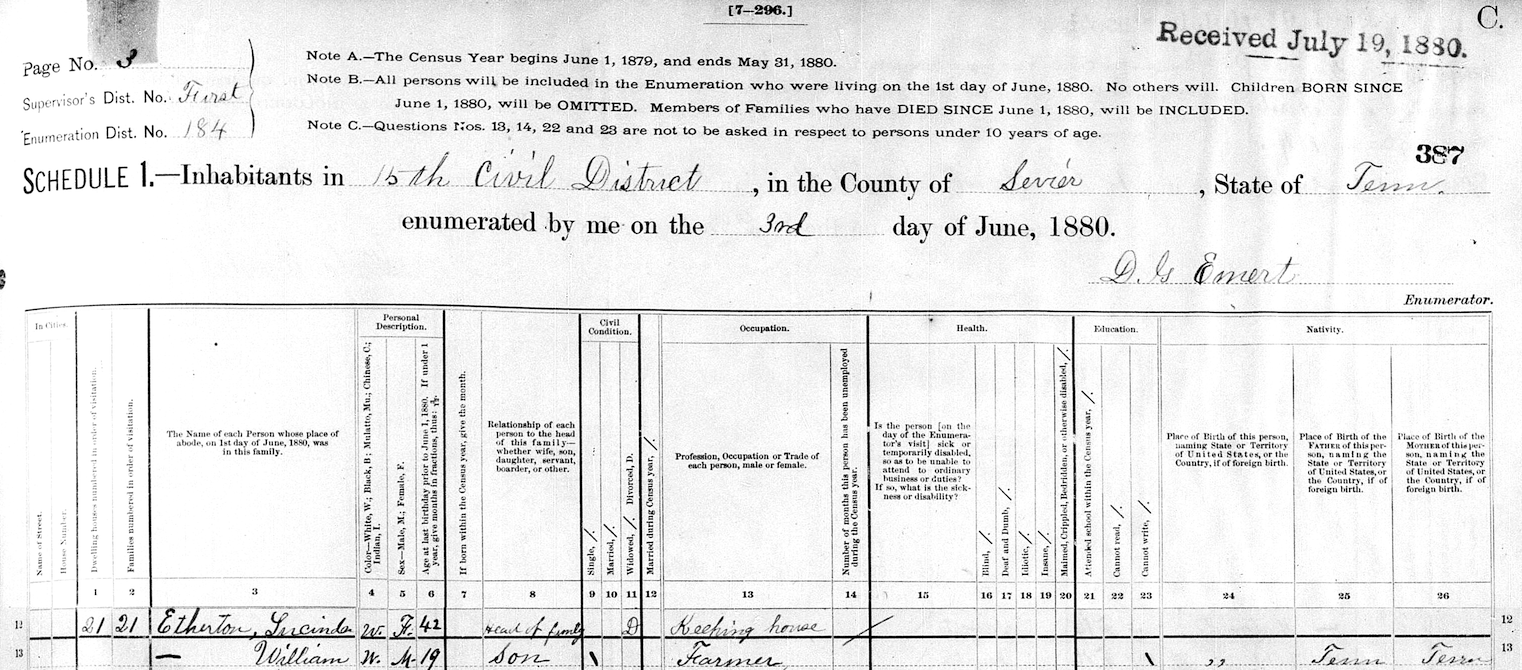 [7—296.]
C.
Received July 19, 1880.
Page No. 3
Supervisor's Dist. No. First
Enumeration Dist. No. 184
Note A.—The Census Year begins June 1, 1879, and ends May 31, 1880.
Note B.—All persons will be included in the Enumeration who were living on the 1st day of June, 1880. No others will. Children BORN SINCE
June 1, 1880, will be OMITTED. Members of Families who have DIED SINCE June 1, 1880, will be INCLUDED.
Note C.—Questions Nos. 13, 14, 22 and 23 are not to be asked in respect to persons under 10 years of age.
387
SCHEDULE 1.—Inhabitants in 15th Civil District, in the County of Sevier, State of Tenn.
enumerated by me on the 3rd day of June, 1880.
D. G Emert
Enumerator.
In Cities.
Name of Street.
House Number.
Dwelling houses numbered in order of visitation.
Families numbered in order of visitation.
The Name of each Person whose place of
abode, on 1st day of June, 1880, was
in this family.
Personal
Description.
Color—White, W.; Black, B.; Mulatto, Mu.; Chinese, C.;
Indian, I.
Sex—Male, M.; Female, F.
Age at last birthday prior to June 1, 1880. If under 1
year, give months in fractions, thus: 3/12.
If born within the Census year, give the month.
Relationship of each
person to the head
of this family—
whether wife, son,
daughter, servant,
boarder, or other.
Civil
Condition.
Single, /.
Married, /.
Widowed, /. Divorced, D.
Married during Census year, /.
Occupation.
Profession, Occupation or Trade of
each person, male or female.
Number of months this person has been unemployed
during the Census year.
Health.
Is the person [on the
day of the Enumera-
tor's visit] sick or
temporarily disabled,
so as to be unable to
attend to ordinary
business or duties?
If so, what is the sick-
ness or disability?
Blind, /.
Deaf and Dumb, /.
Idiotic, /.
Insane, /.
Maimed, Crippled, Bedridden, or otherwise disabled, /.
Education.
Attended school within the Census year, /.
Cannot read, /.
Cannot write, /.
Nativity.
Place of Birth of this person,
naming State or Territory
of United States, or
the Country, if of foreign birth.
Place of Birth of the
FATHER of this per-
son, naming the
State or Territory
of United States, or
the Country, if of
foreign birth.
Place of Birth of the
MOTHER of this per-
son, naming the
State or Territory
of United States, or
the Country, if of
foreign birth.
1 2 3 4 5 6 7 8 9 10 11 12 13 14 15 16 17 18 19 20 21 22 23 24 25 26
12 21 21 Etherton, Lucinda W. F. 42 Head of family D Keeping house / 12
13 — William W. M 19 Son \ Farmer \ " Tenn Tenn 13